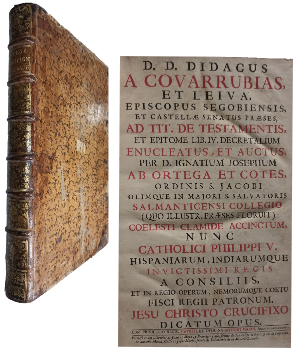 D. D. DIDACUS
A COVARRUBIAS,
ET LEIVA,
EPISCOPUS SEGOBIENSIS,
ET CASTELLÆ SENATUS PRÆSES,
AD TIT. DE TESTAMENTIS,
ET EPITOME LIB. IV. DECRETALIUM
ENUCLEATUS, ET AUCTUS,
PER D. IGNATIUM JOSEPHUM
AB ORTEGA ET COTES,
ORDINIS S. JACOBI
OLIMQUE IN MAJORI S. SALVATORIS
SALMANTICENSI COLLEGIO
(QUO ILLUSTR. PRÆSES FLORUIT)
COELESTI CLAMIDE ACCINCTUM,
NUNC
CATHOLICI PHILIPPI V.
HISPANIARUM, INDIARUMQUE
INVICTISSIMI REGIS
A CONSILIIS,
ET IN REGIO OPERUM, NEMORUMQUE COETU
FISCI REGII PATRONUM,
JESU CHRISTO CRUCIFIXO
DICATUM OPUS.